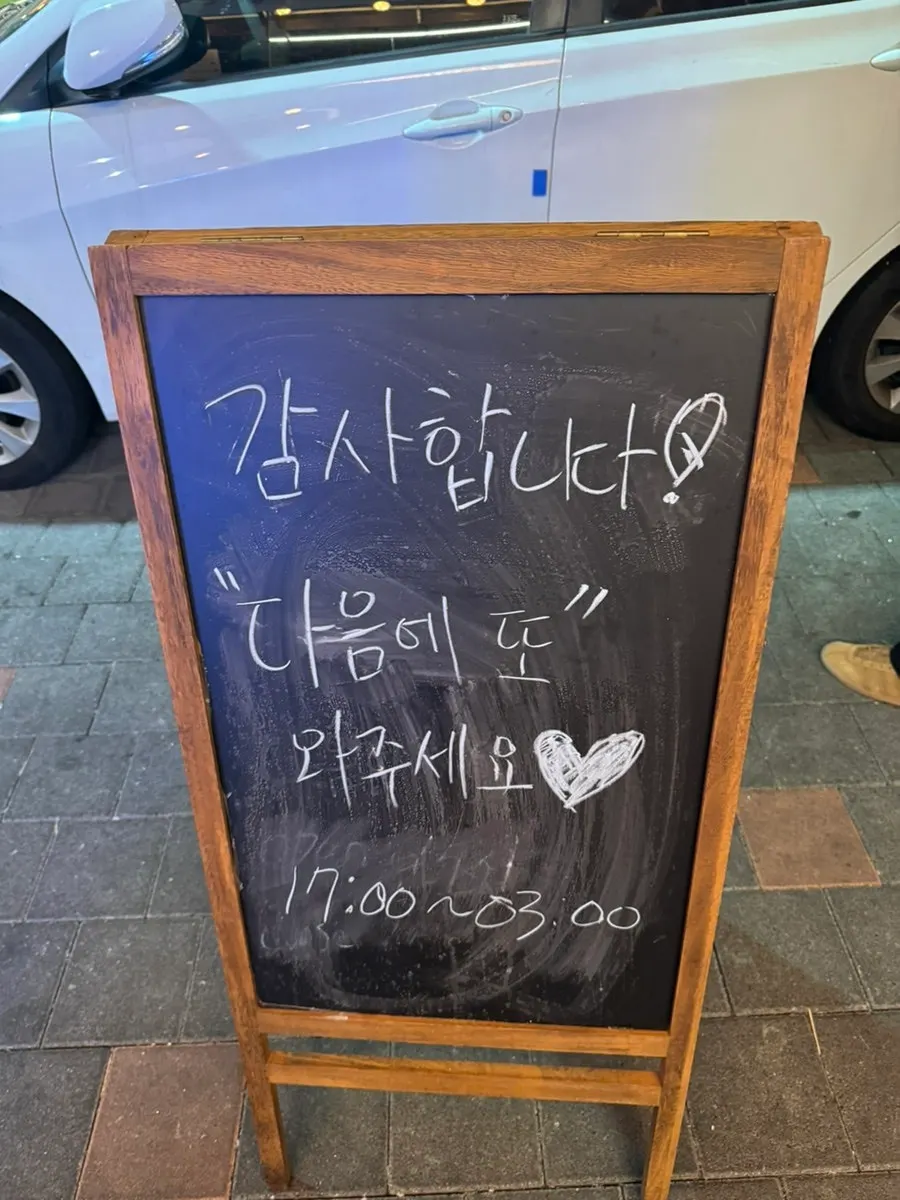 감사합니다!
"다음에 또"
와주세요♥
17:00~03:00